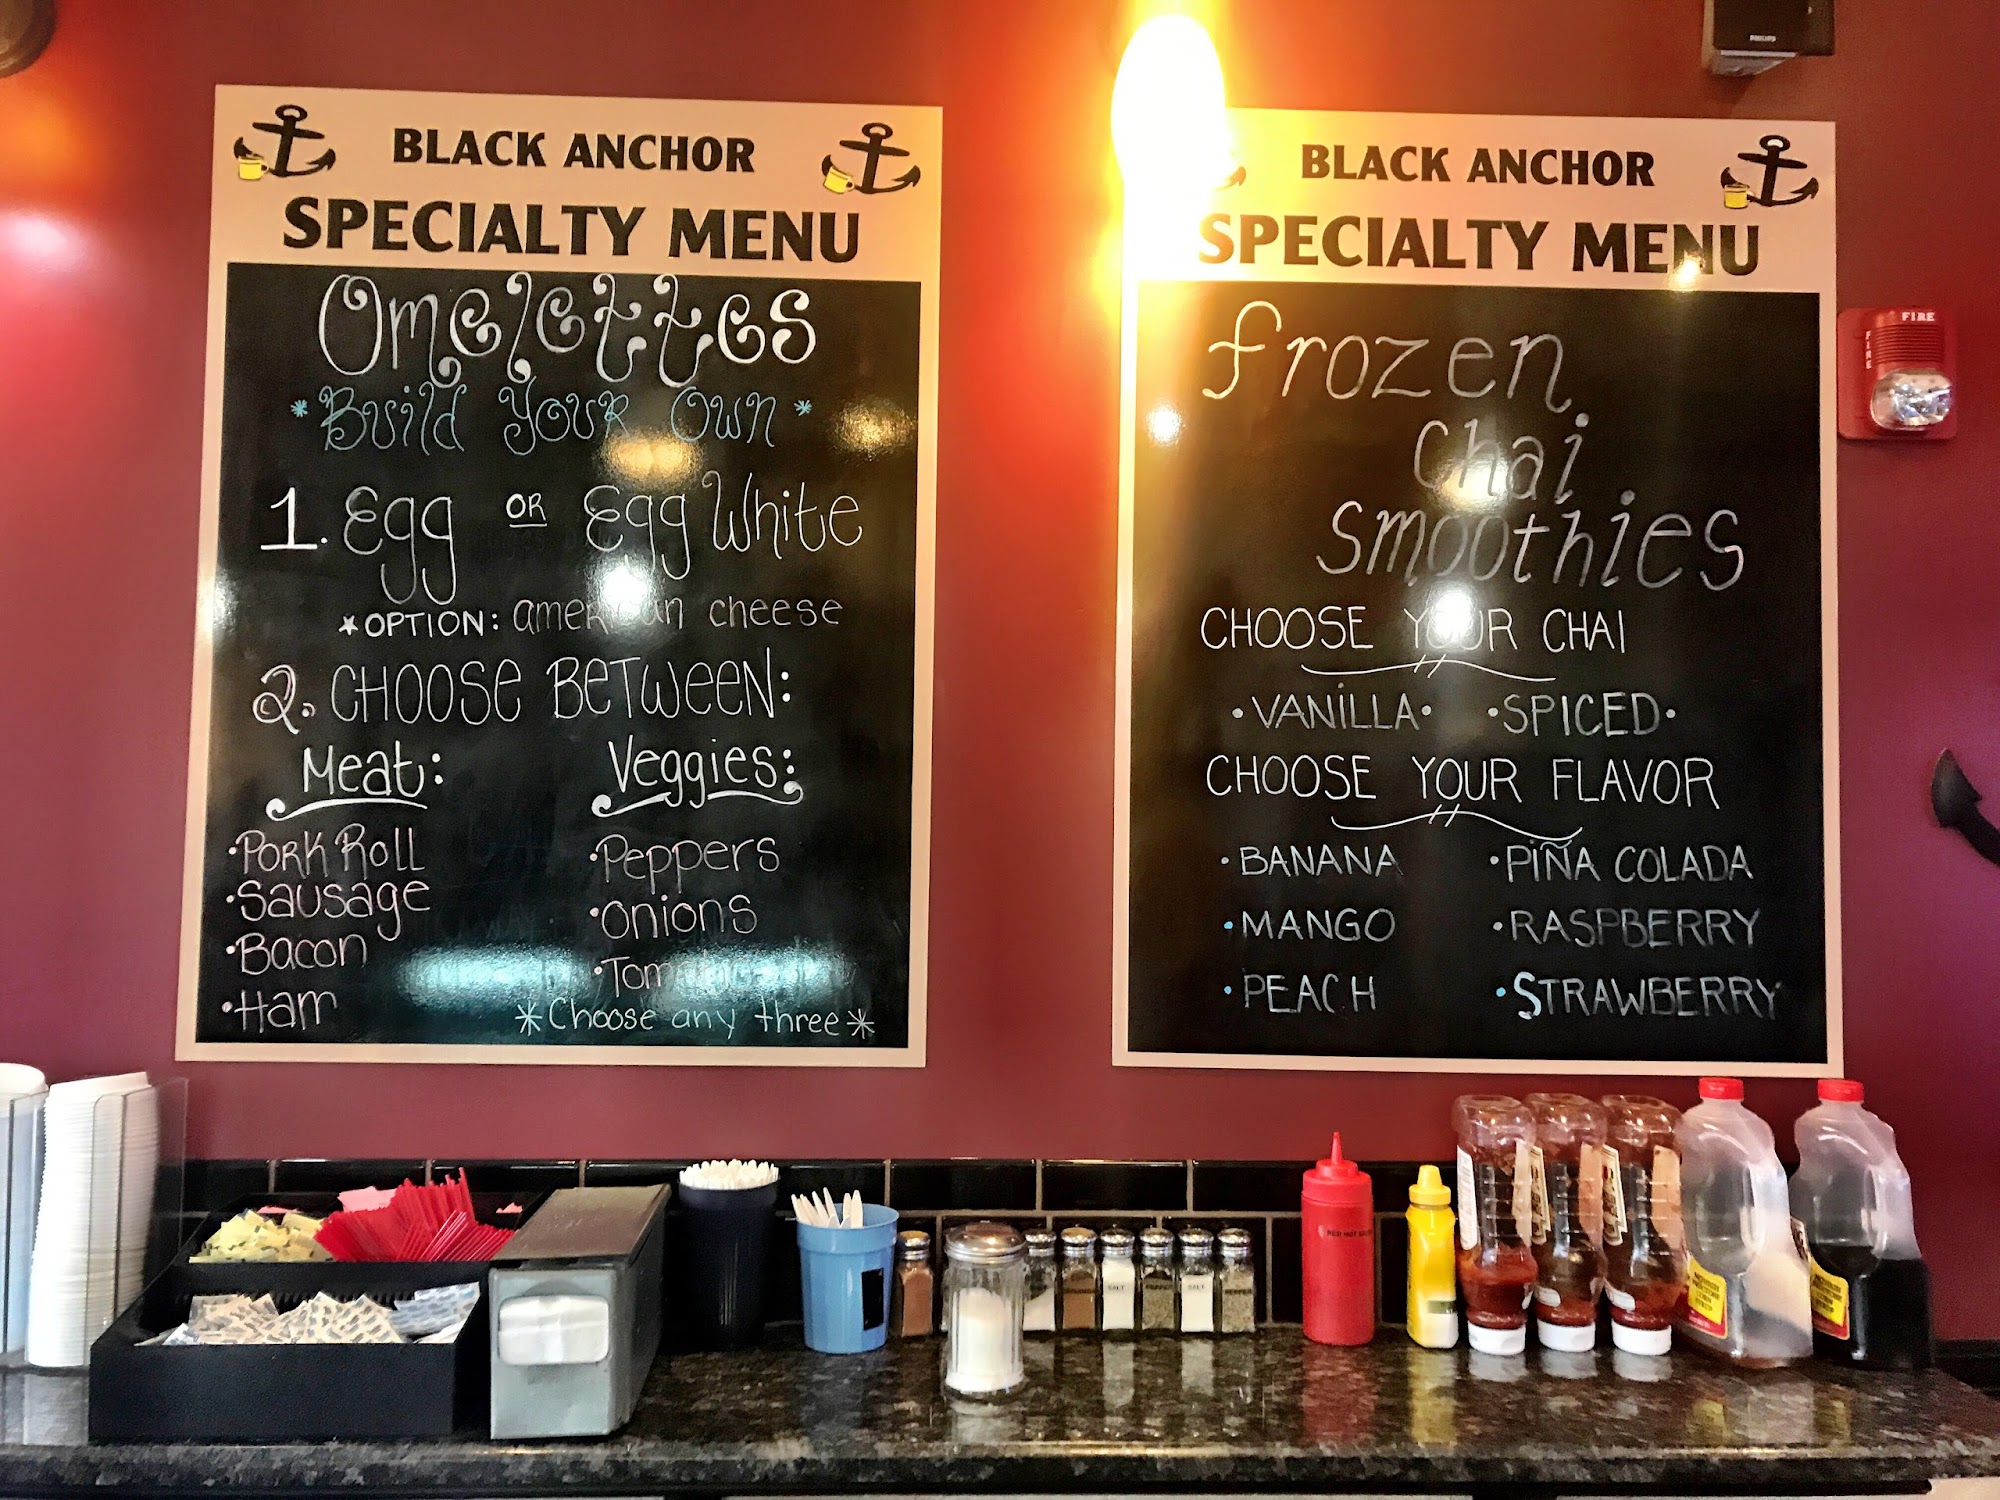 BLACK ANCHOR
SPECIALTY MENU
Omelettes
*Build Your Own*
1. Egg OR Egg White
*OPTION: american cheese
2. CHOOSE BETWEEN:
Meat:
•Pork Roll
•Sausage
•Bacon
•Ham
Veggies:
•Peppers
•Onions
*Choose any three*
BLACK ANCHOR
SPECIALTY MENU
Frozen
Chai
Smoothies
CHOOSE YOUR CHAI
•VANILLA• •SPICED•
CHOOSE YOUR FLAVOR
•BANANA
•MANGO
•PEACH
•PIÑA COLADA
•RASPBERRY
•STRAWBERRY
PHILIPS
FIRE
FIRE
SALT
SALT